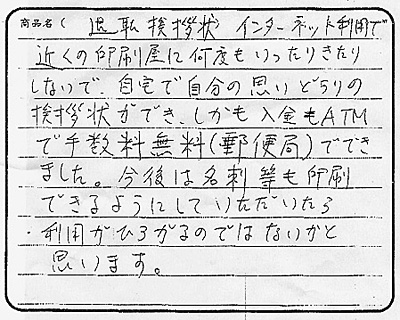 商品名( 退転挨拶状 インターネット利用で
近くの印刷屋に何度もいったりきたり
しないで、自宅で自分の思いどうりの
挨拶状ができ、しかも入金もATM
で手数料無料(郵便局)ででき
ました。今後は名刺等も印刷
できるようにしていただいたら
・利用がひろがるのではないかと
思います。